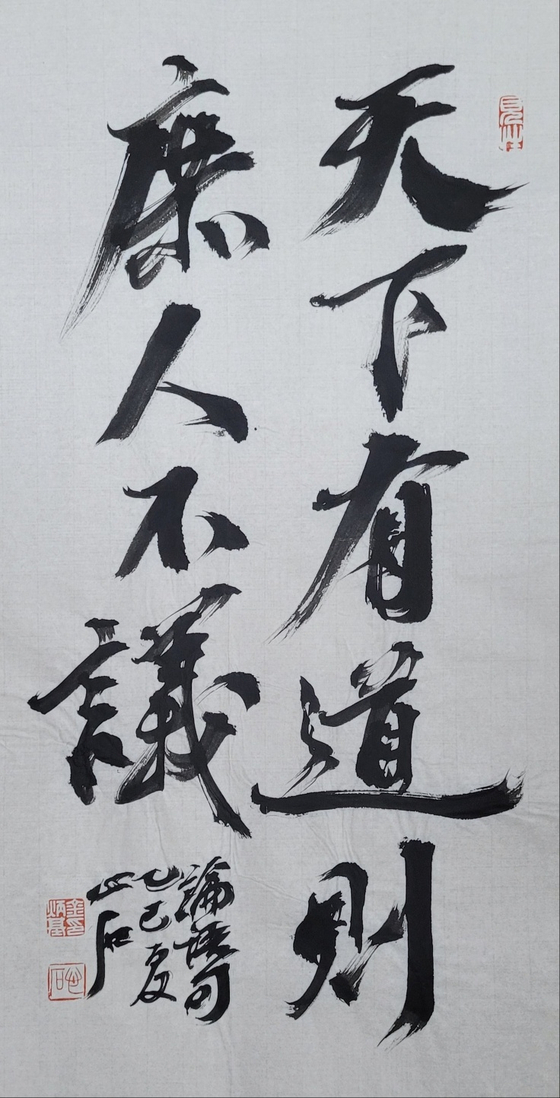 天下有道則
庶人不議
論語句
乙巳夏
石